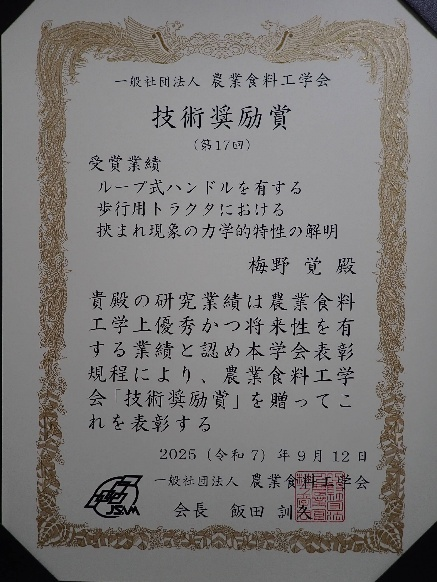 一般社団法人 農業食料工学会
技術奨励賞
(第17回)
受賞業績
ループ式ハンドルを有する
歩行用トラクタにおける
挟まれ現象の力学的特性の解明
梅野 覚 殿
貴殿の研究業績は農業食料
工学上優秀かつ将来性を有
する業績と認め本学会表彰
規程により、農業食料工学
会「技術奨励賞」を贈ってこ
れを表彰する
2025 (令和7) 年9月12日
一般社団法人 農業食料工学会
会長 飯田 訓久
JSAM